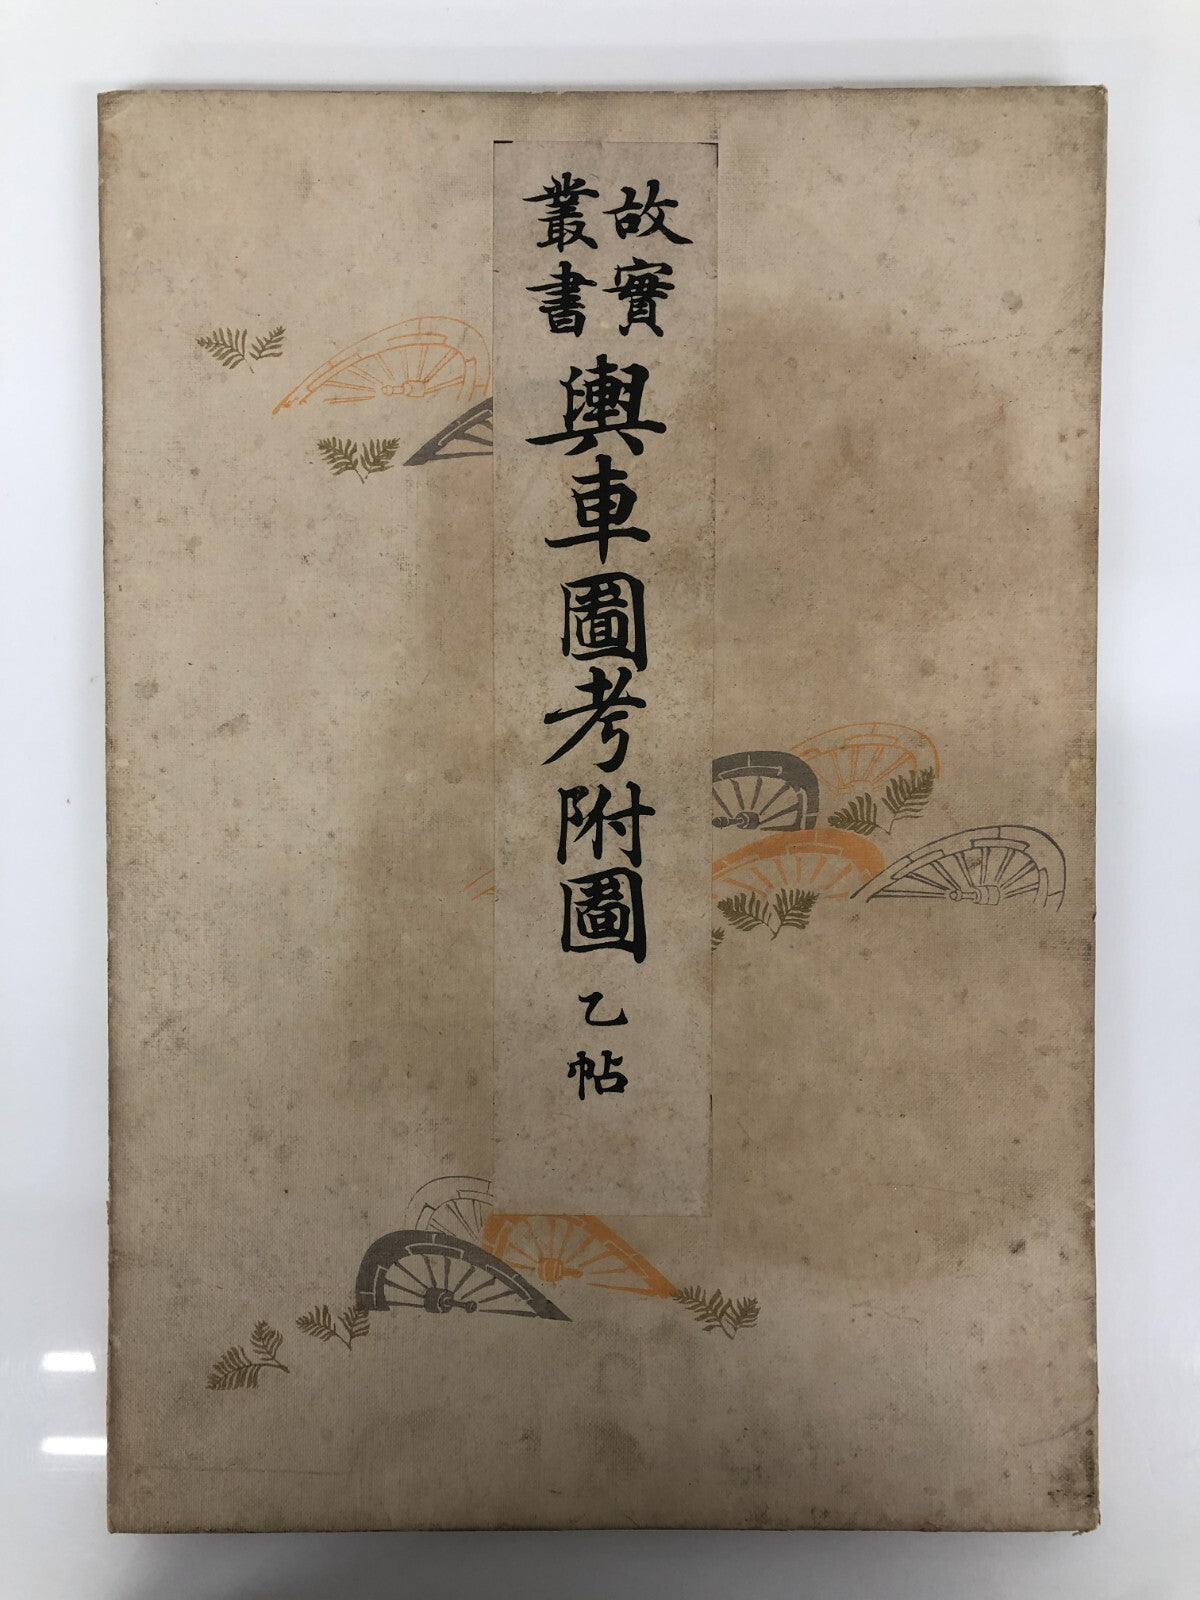 故實
叢書
輿車圖考附圖
乙帖